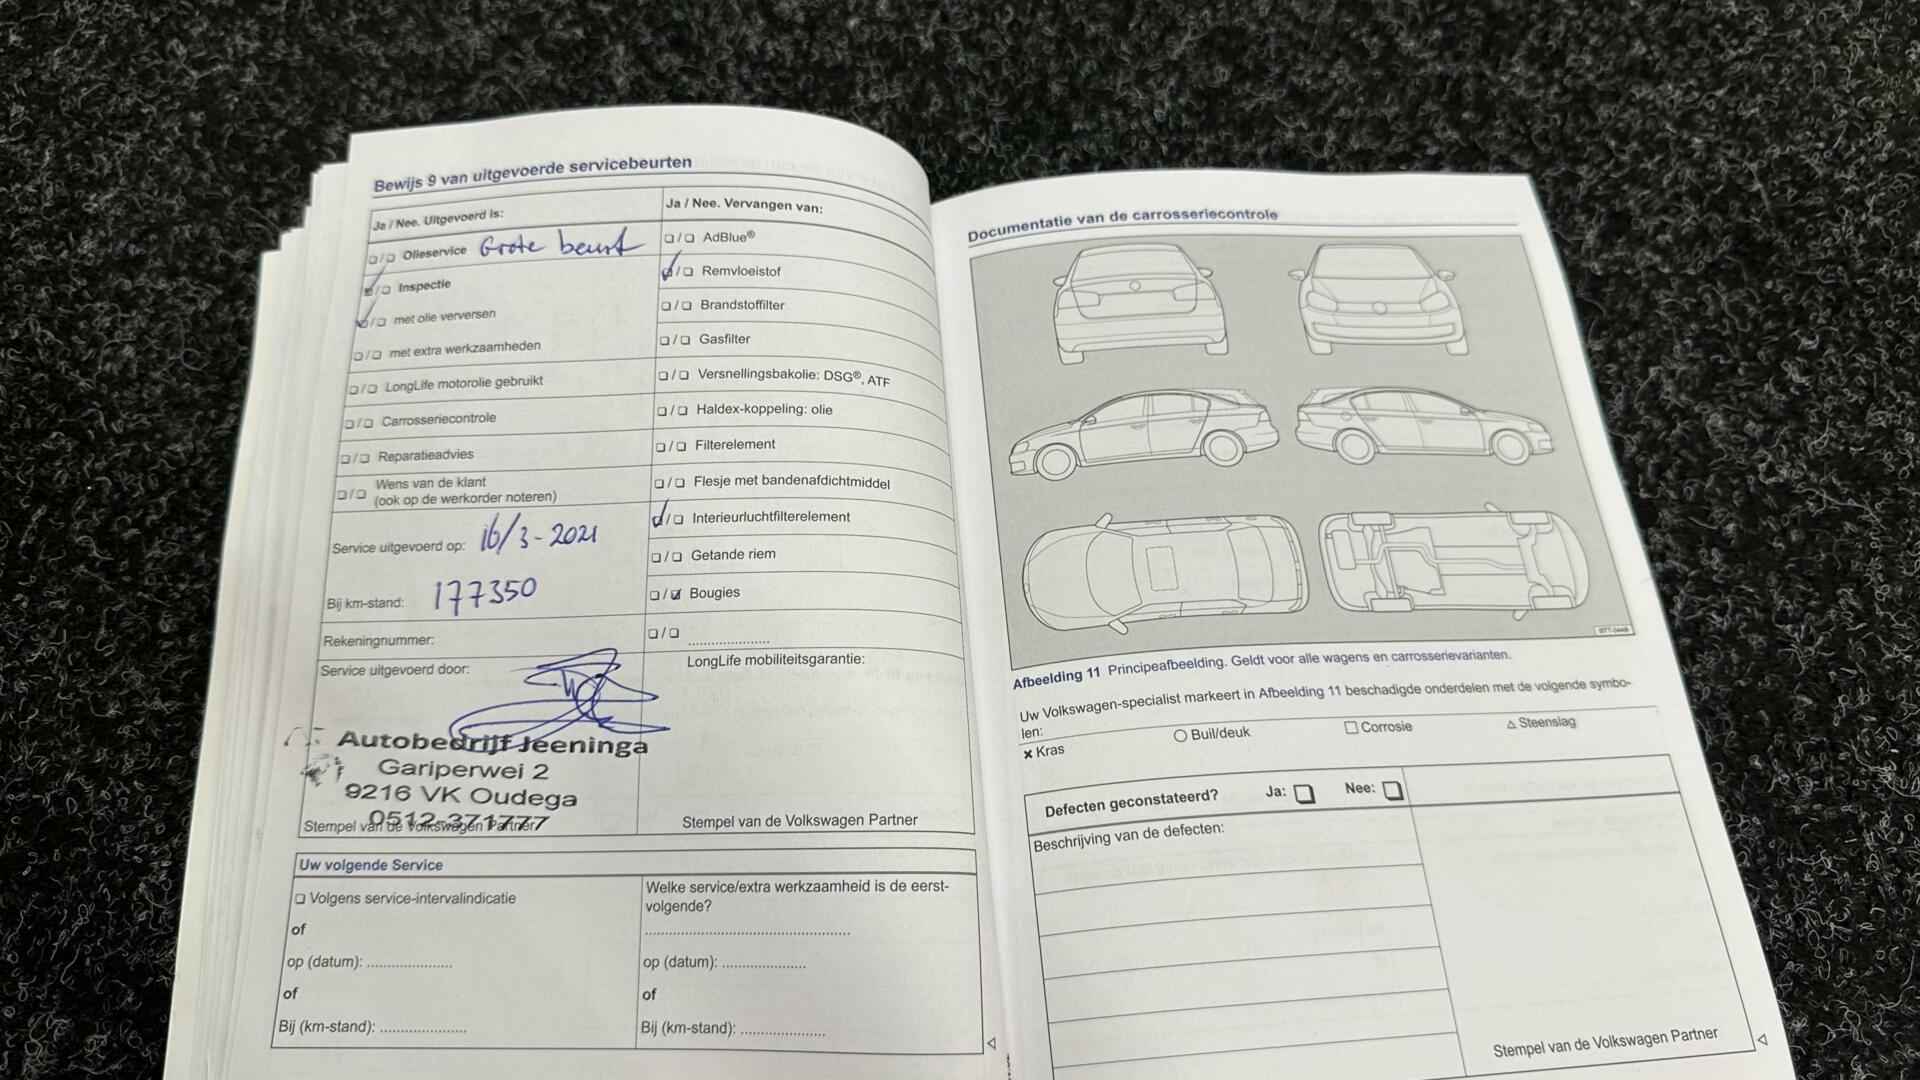 Bewijs 9 van uitgevoerde servicebeurten
Ja / Nee. Uitgevoerd is:
Olieservice Grote beurt
Inspectie
met olie verversen
met extra werkzaamheden
LongLife motorolie gebruikt
Carrosseriecontrole
Reparatieadvies
Wens van de klant
(ook op de werkorder noteren)
Service uitgevoerd op: 16/3-2021
Bij km-stand: 177350
Rekeningnummer:
Service uitgevoerd door:
Autobedrijf Jeeninga
Gariperwei 2
9216 VK Oudega
0512-371777
Stempel van de Volkswagen Partner
Ja / Nee. Vervangen van:
AdBlue®
Remvloeistof
Brandstoffilter
Gasfilter
Versnellingsbakolie: DSG®, ATF
Haldex-koppeling: olie
Filterelement
Flesje met bandenafdichtmiddel
Interieurluchtfilterelement
Getande riem
Bougies
LongLife mobiliteitsgarantie:
Stempel van de Volkswagen Partner
Uw volgende Service
Volgens service-intervalindicatie
of
op (datum): ....................
of
Bij (km-stand): ....................
Welke service/extra werkzaamheid is de eerst-
volgende?
op (datum): ....................
of
Bij (km-stand): ....................
Documentatie van de carrosseriecontrole
Afbeelding 11 Principeafbeelding. Geldt voor alle wagens en carrosserievarianten.
Uw Volkswagen-specialist markeert in Afbeelding 11 beschadigde onderdelen met de volgende symbo-
len:
Kras
Buil/deuk
Corrosie
Steenslag
Defecten geconstateerd? Ja: Nee:
Beschrijving van de defecten:
Stempel van de Volkswagen Partner